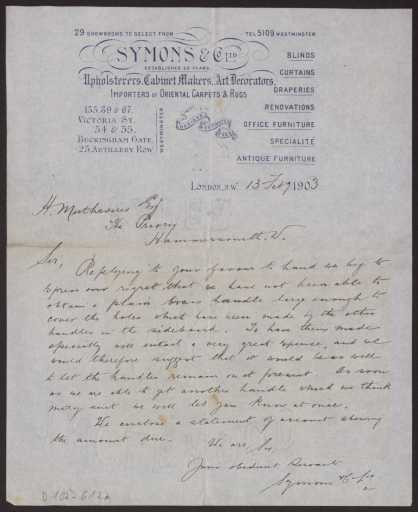 29 SHOWROOMS TO SELECT FROM
TEL 5109 WESTMINSTER
SYMONS & Co LTD
ESTABLISHED 50 YEARS
Upholsterers, Cabinet Makers, Art Decorators,
IMPORTERS OF ORIENTAL CARPETS & RUGS
BLINDS
CURTAINS
DRAPERIES
RENOVATIONS
OFFICE FURNITURE
SPECIALITÉ
ANTIQUE FURNITURE
VICTORIA ST.
54 & 55,
BUCKINGHAM GATE,
25, ARTILLERY ROW
WESTMINSTER
LONDON, S.W. 13 Feby 1903
H. Esq
The Priory
Hammersmith. W.
Sir,
Replying to your favour to hand we beg to
express our regret that we have not been able to
obtain a plain brass handle large enough to
cover the holes which have been made by the other
handles in the sideboard. To have them made
specially will entail a very great expense, and we
would therefore suggest that it would be as well
to let the handles remain as at present. As soon
as we are able to get another handle which we think
may suit we will let you know at once.
We enclose a statement of account showing
the amount due.
We are, Sir,
Your obedient Servants
Symons & Co